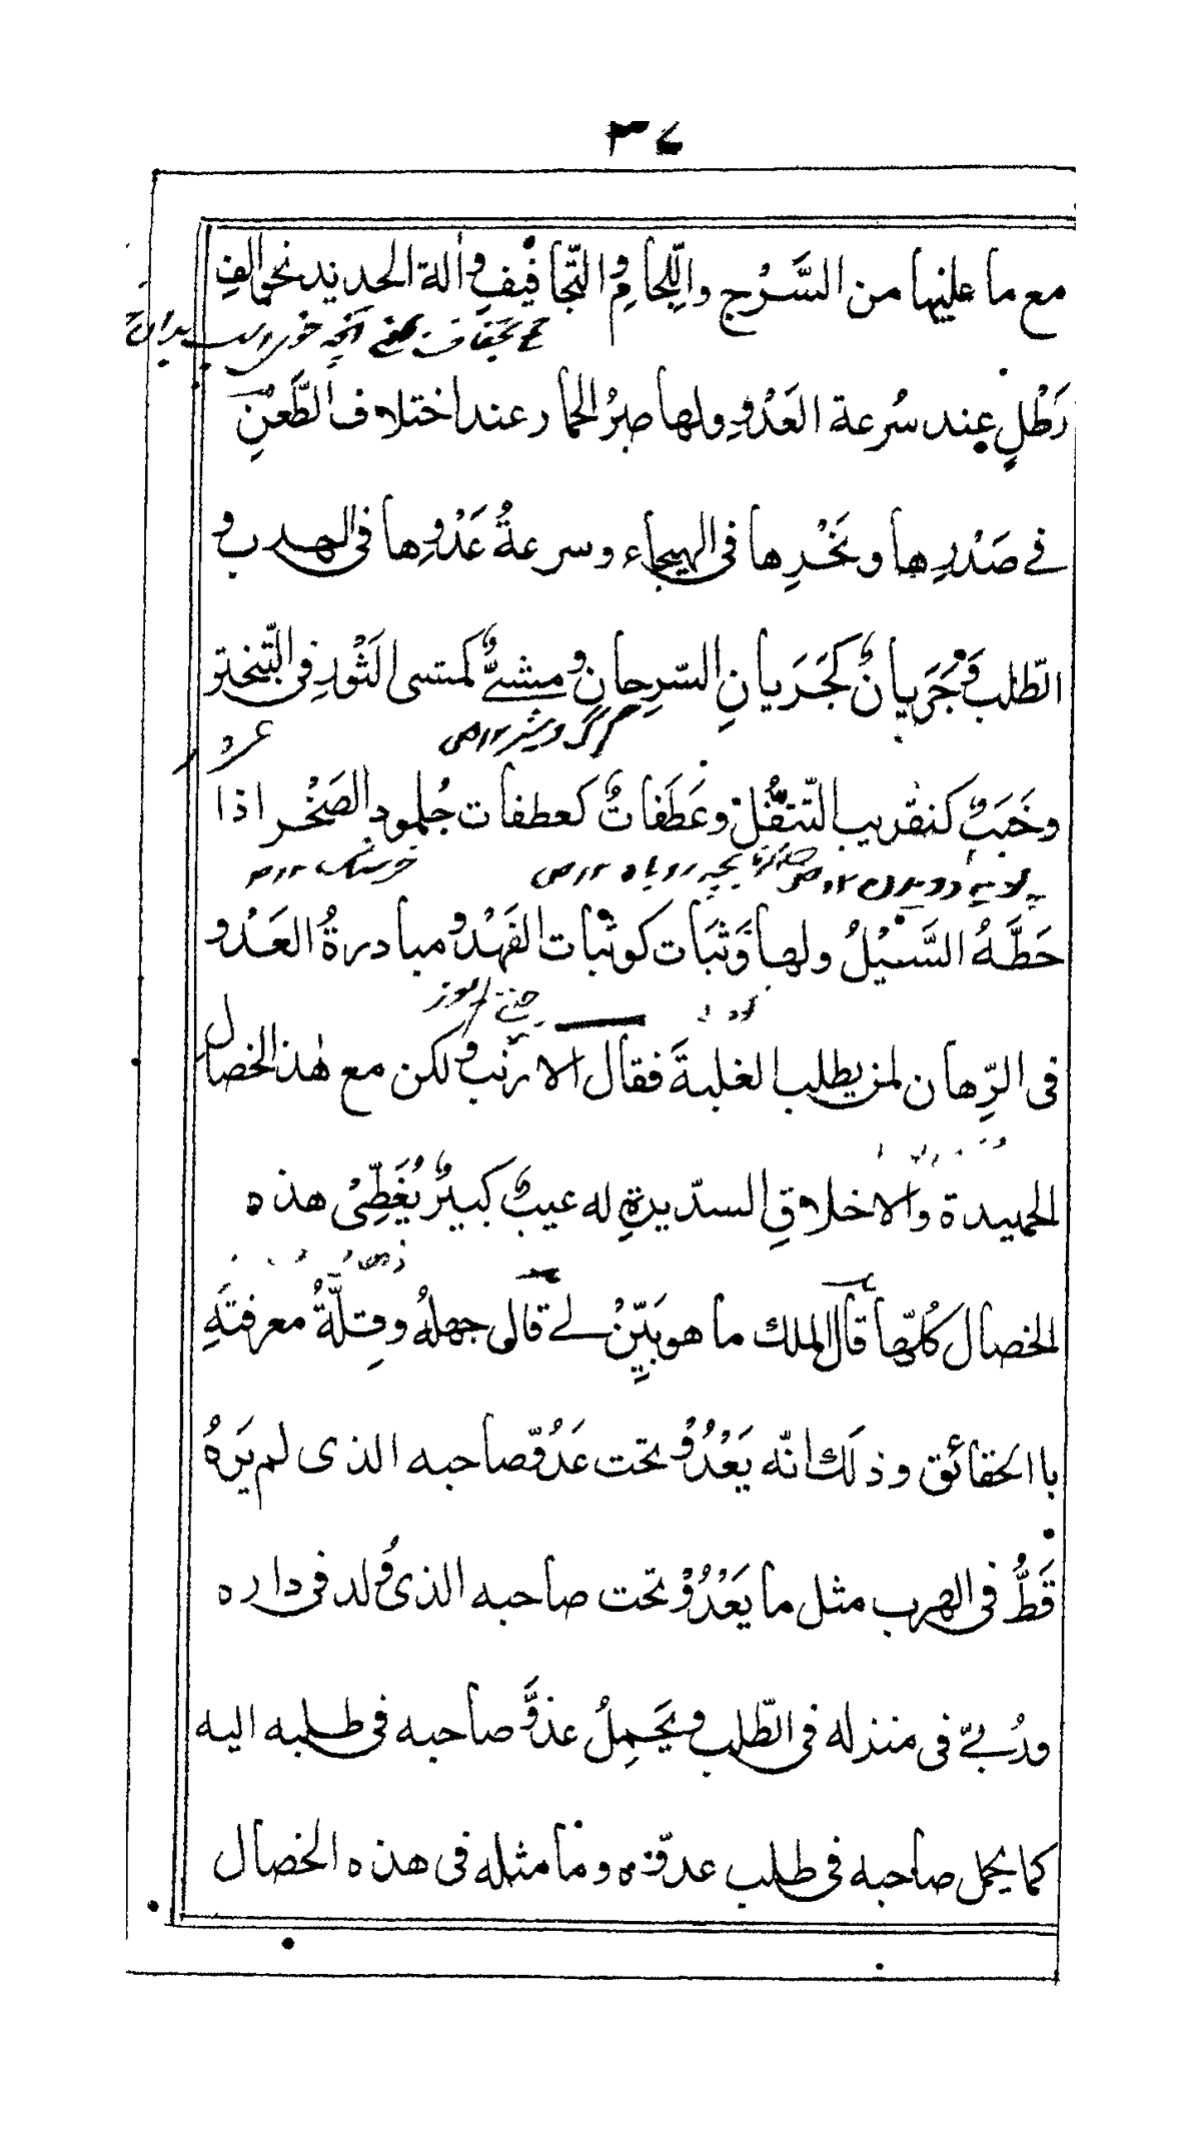 ٣٤
مع ما عليها من السَّرْج واللّجامِ والتّجافيفِ وألة الحديد نحو الفِ
رَطْلٍ عِند سُرعة العَدْوِ ولها صبرُ الحمار عند اختلاف الطَّعْنِ
فے صَدْرِها ونَحْرِها فى الهيجاء وسرعةُ عَدْوِها فى الهرب و
الطّلب وجَرَيانٌ كجَرَيانِ السّرحانِ ومشىٌ كمشى الثَوْرِ فى التّبختر
گرگ و شیر ١٢ ص
وخَبَبٌ كتقريب التّتفُل وعَطَفاتٌ كعطفات جُلمودِ الصَخْر اذا
بچہ روباه ١٢ ص
خرسنگ ١٢ ص
حَطَّهُ السَّيْلُ ولها وَثَبَات كوثبات الفَهْد ومبادرةُ العَدْو
فى الرِّهان لمن يطلب الغلبةَ فقال الارنب ولكن مع هٰذا الخصال
الحميدة والاخلاقِ السدّيدةِ له عيبٌ كبيرٌ يُغَطِّىْ هذه
الخصال كُلّها قال الملك ما هو بَيِّنْ لے قال جهلُهُ وقِلَّةُ معرفتَهِ
باالحقائق وذلك انّه يَعْدُوْ تحت عَدُوّ صاحبه الذى لم يَرَهُ
قَطُّ فى الهرب مثل ما يَعْدُوْ تحت صاحبه الذى وُلد فى داره
ورُبىّ فى منزله فى الطّلب ويَحمِلُ عذوَّ صاحبه فى طلبه اليه
كما يحمل صاحبه فى طلب عدوّه وما مثله فى هذه الخصال